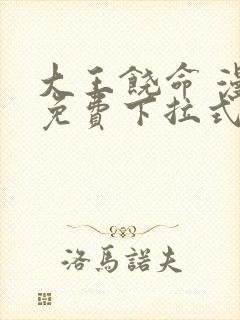 大王饶命 漫
免費下拉式
洛馬諾夫